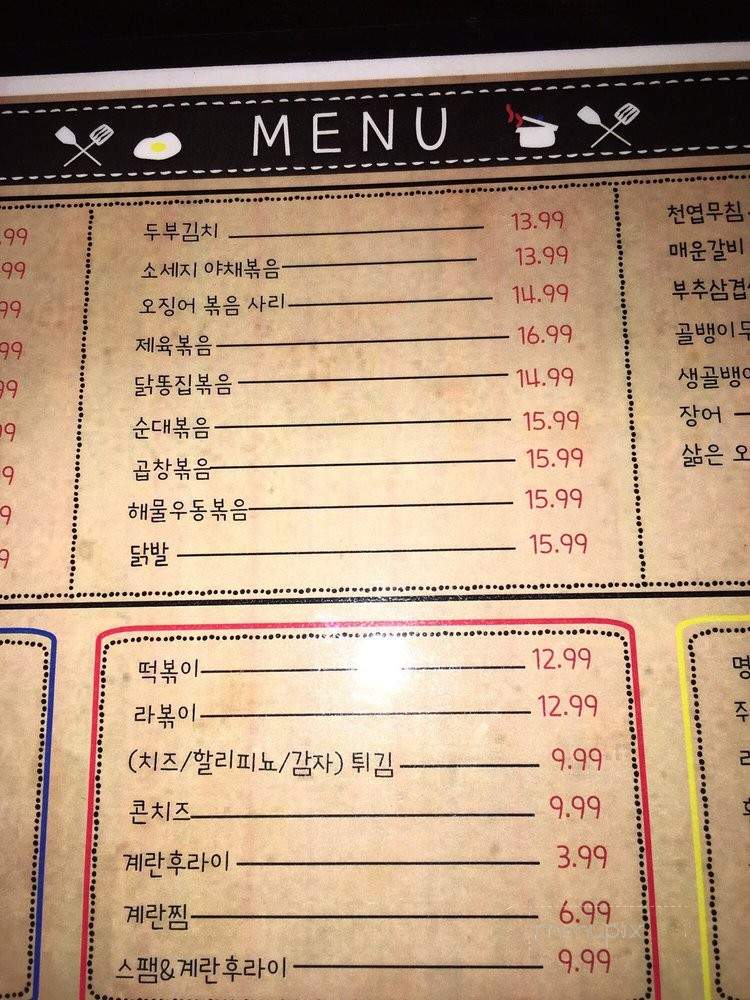 MENU
.99
.99
99
99
99
99
9
9
9
두부김치 13.99
소세지 야채볶음 13.99
오징어 볶음 사리 14.99
제육볶음 16.99
닭똥집볶음 14.99
순대볶음 15.99
곱창볶음 15.99
해물우동볶음 15.99
닭발 15.99
천엽무침
매운갈비
부추삼겹
골뱅이무
생골뱅이
장어
삶은 오
떡볶이 12.99
라볶이 12.99
(치즈/할리피뇨/감자) 튀김 9.99
콘치즈 9.99
계란후라이 3.99
계란찜 6.99
스팸&계란후라이 9.99